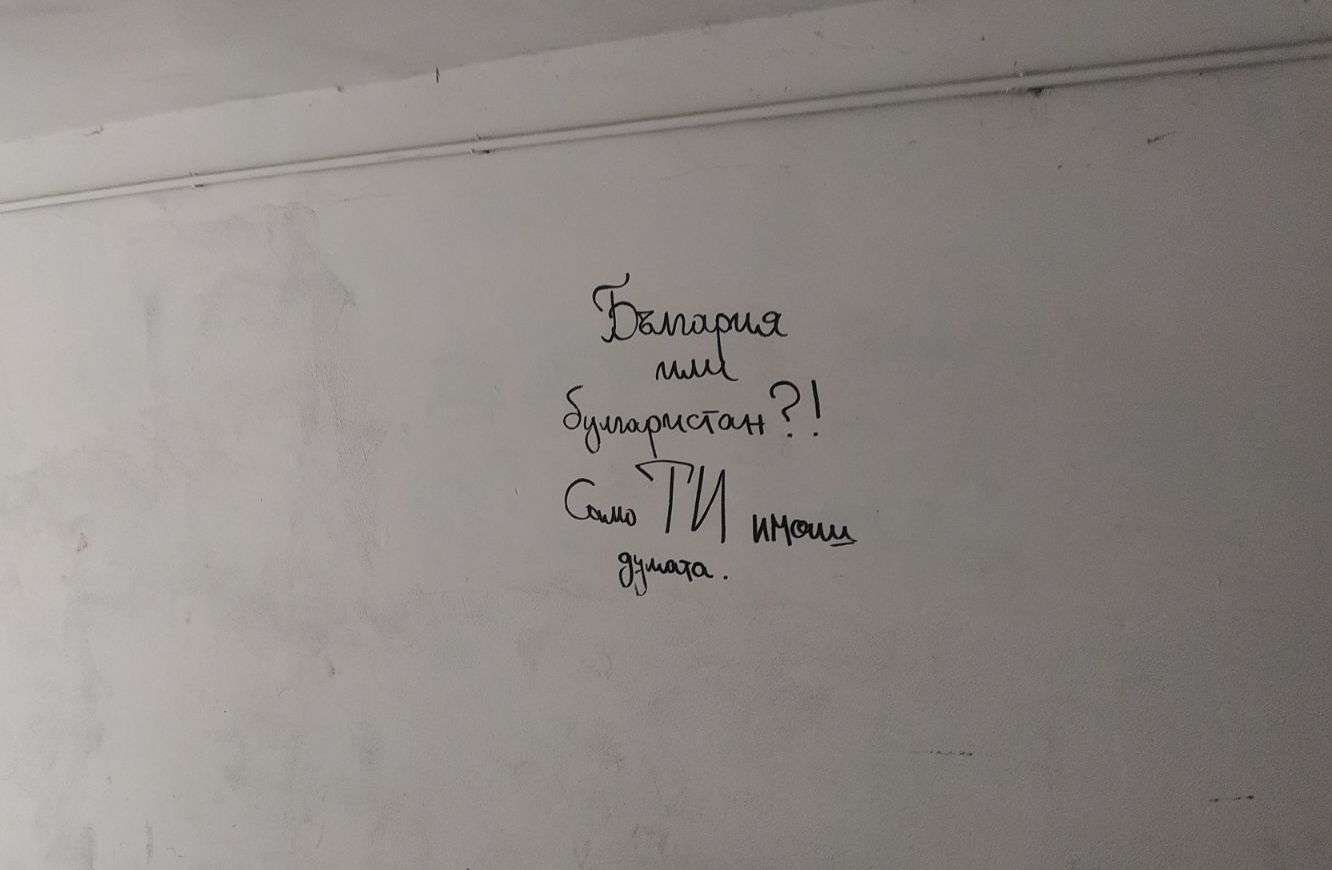 България
или
булгаристан?!
Само ТИ имаш
думата.